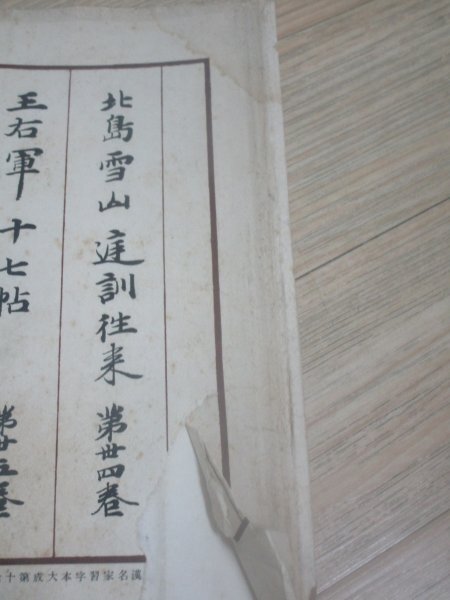 北島雪山 庭訓往来 第卅四巻
王右軍 十七帖 第廿五巻
漢名家習字本大成第十